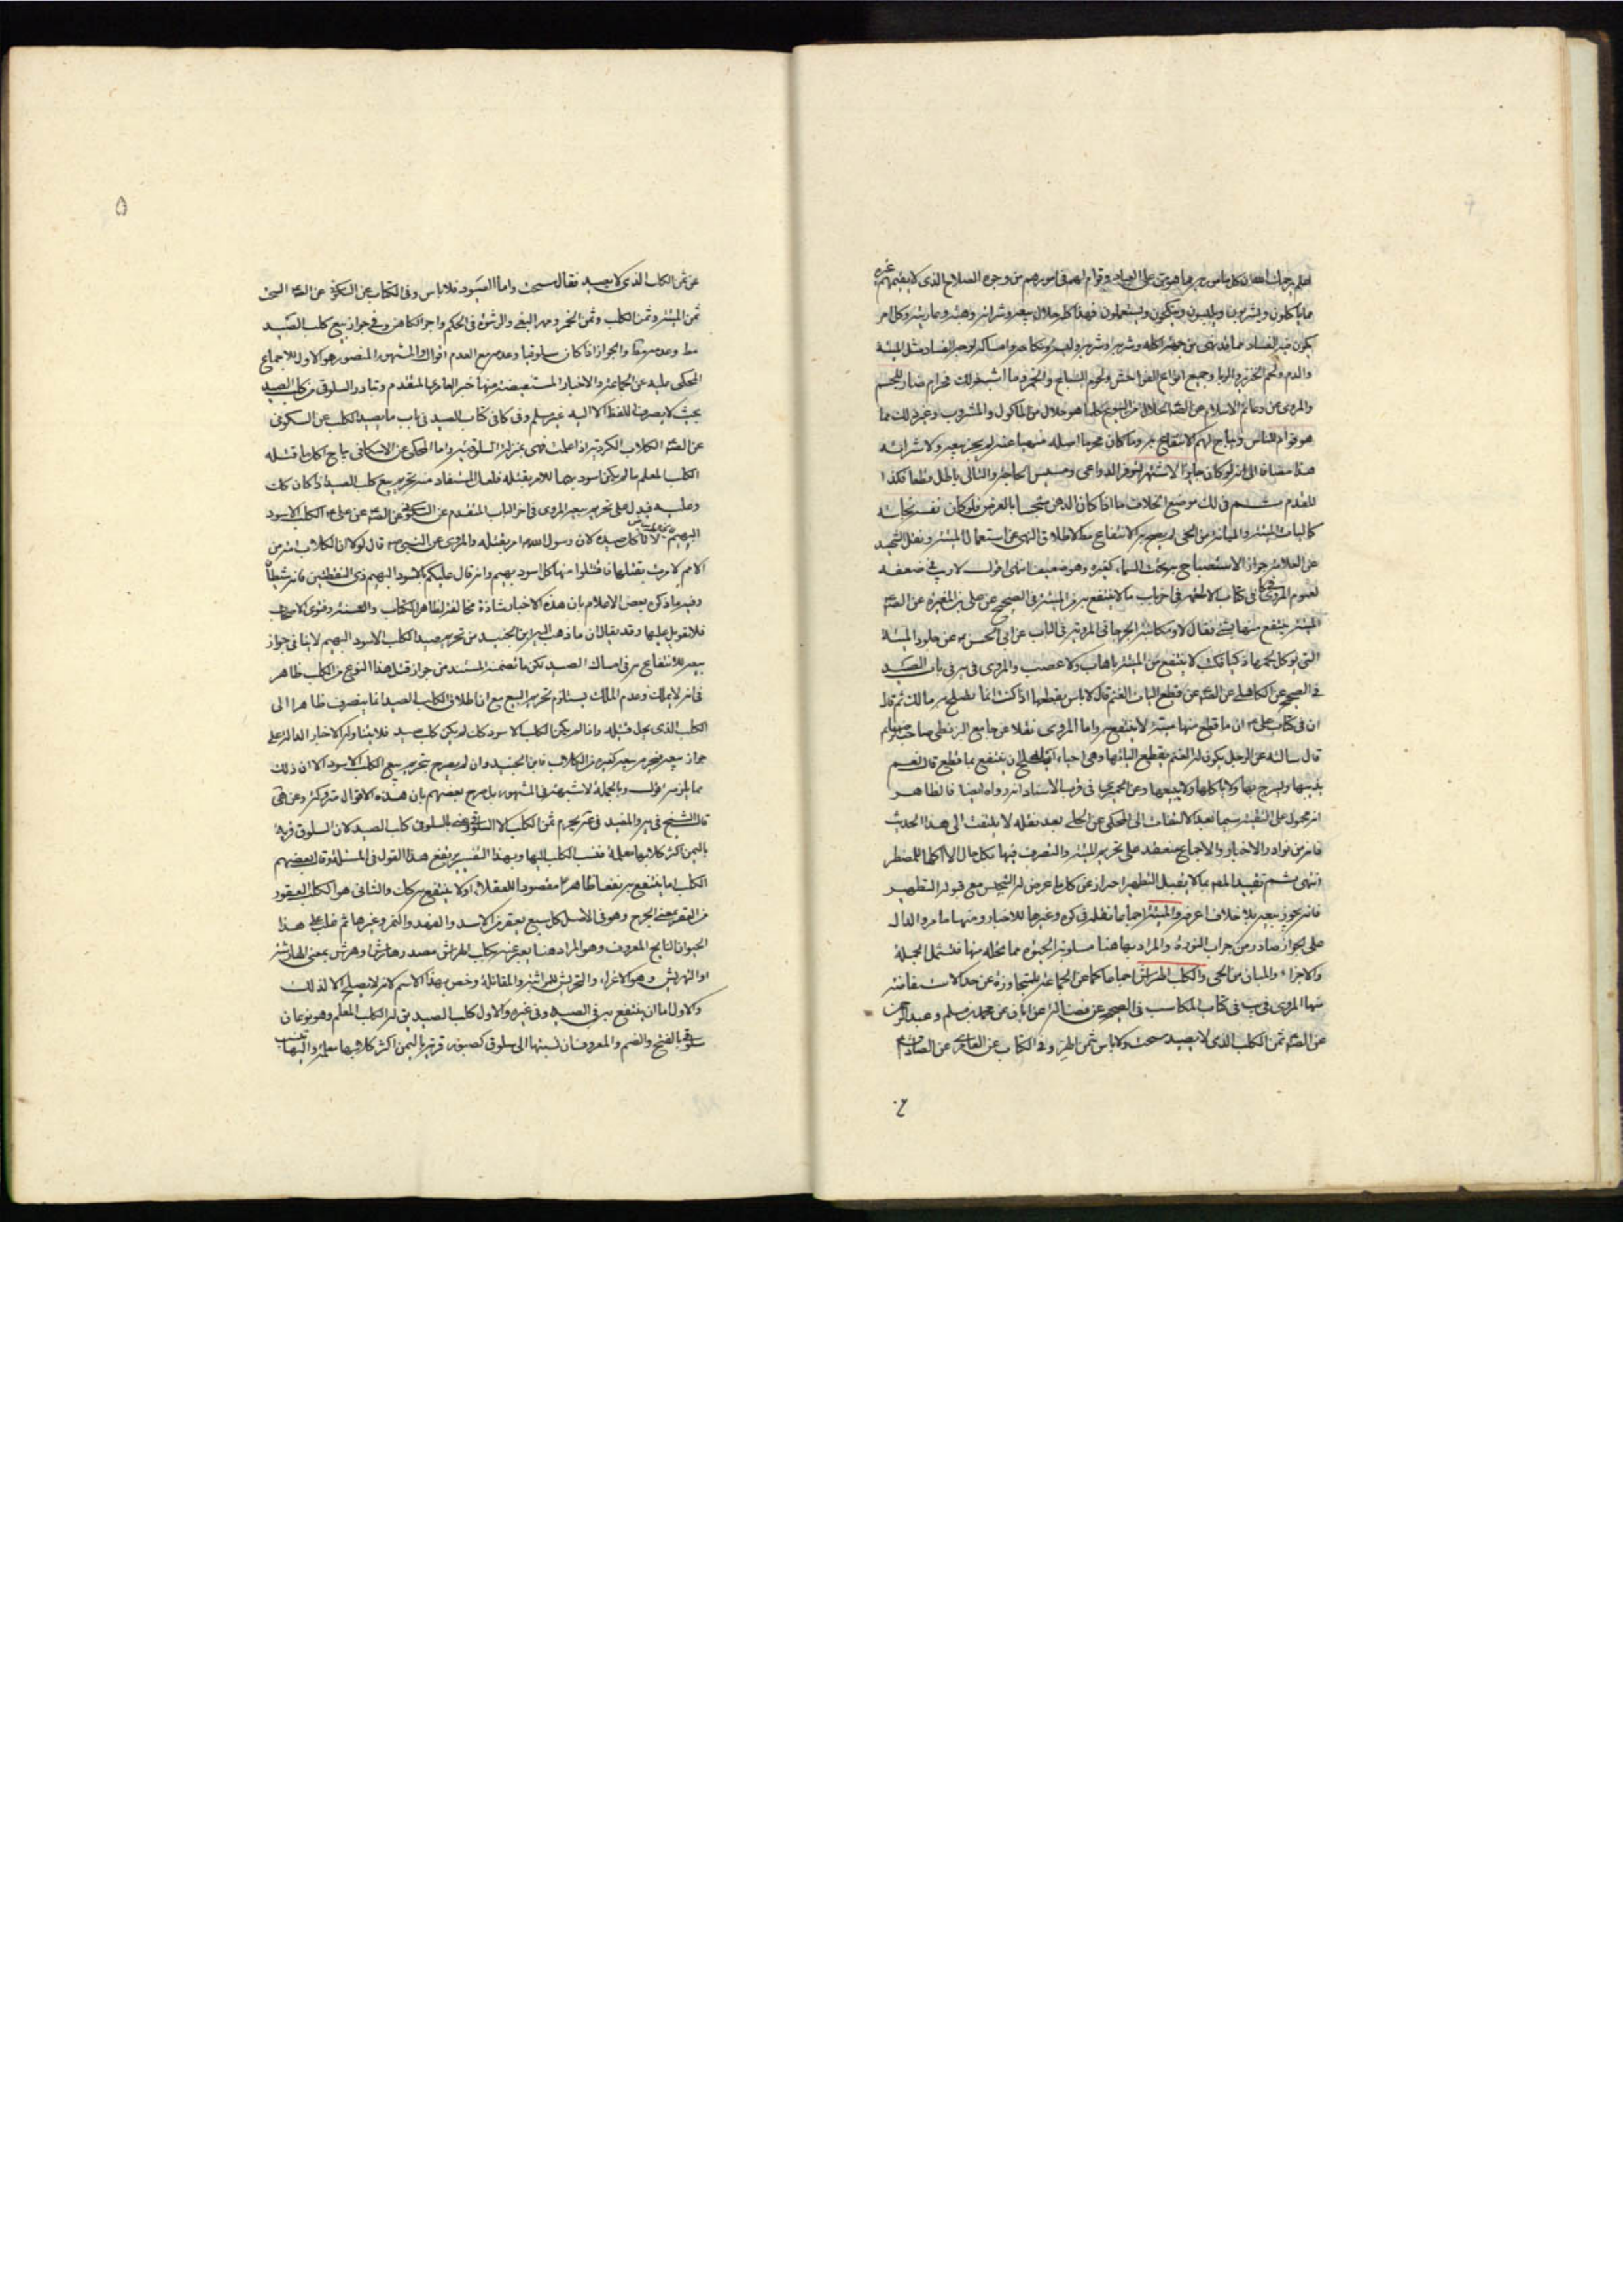 اعلم رحمك الله ان كل مامور به مما هو من على العباد وقوام لهم فى امورهم من وجوه الصلاح الذى لا يقيمهم غيره
مما ياكلون ويشربون ويلبسون وينكحون ويستعملون فهذا كله حلال بيعه وشرائه وهبته وعاريته وكل امر
يكون فيه الفساد مما قد نهى عنه من جهة اكله وشربه ولبسه ونكاحه وامساكه لوجه الفساد مثل الميتة
والدم ولحم الخنزير والربا وجميع انواع الفواحش ولحوم السباع والخمر وما اشبه ذلك فحرام ضار للجسم
والمروى عن دعائم الاسلام عن الصه الحلال من البيوع كلما هو حلال من الماكول والمشروب وغير ذلك مما
هو قوام للناس ويباح لهم الانتفاع به وما كان محرما اصله منهيا عنه لم يجز بيعه ولا شرائه
هذا مضافا الى انه لو كان جايزا لاشتهر لتوفر الدواعى ومسيس الحاجة والتالى باطل قطعا فكذا
المقدم ثم فى ذلك موضع الخلاف ما اذا كان الدهن متنجسا بالعرض فلو كان نفسه نجاسة
كاليات الميتة والمبانة من الحى لم يصح به الانتفاع مط لاطلاق النهى عن استعمال الميتة ونقل الشهيد
عن العلامة جواز الاستصباح به تحت السماء كغيره وهو ضعيف انتهى اقول لا ريب فى ضعفه
لعموم المروى فى كتاب الاطعمه فى اخر باب ما لا ينتفع به من الميتة فى الصحيح عن على بن المغيرة عن الصه
الميتة ينتفع منها بشئ فقال لا ومكاتبة الجرجانى المروية فى الباب عن ابى الحسن ع عن جلود الميتة
التى يوكل لحمها ذكيا فكتب لا ينتفع من الميتة باهاب ولا عصب والمروى فى باب الصيد
فى الصحيح عن الكاهلى عن الصه عن قطع اليات الغنم قال لا باس بقطعها اذا كنت انما تصلح به مالك ثم قال
ان فى كتاب على ع ان ما قطع منها ميتة لا ينتفع به واما المروى نقلا عن جامع البزنطى صاحب الرضا ع
قال سالته عن الرجل يكون له الغنم يقطع من الياتها وهى احياء ايصلح ان ينتفع بما قطع قال نعم
يذيبها ويسرج بها ولا ياكلها ولا يبيعها وعن الحميرى فى قرب الاسناد انه رواه ايضا فالظاهر
انه محمول على التقية سيما بعد الالتفات الى المحكى عن الحلى بعد نقله لا يلتفت الى هذا الحديث
فانه من نوادر الاخبار والاجماع منعقد على تحريم الميتة والتصرف فيها بكل حال الا اكلها للمضطر
انتهى ثم تقييد المصه بما لا يقبل التطهير احتراز عن كل ما عرض له التنجيس مع قبوله التطهير
فانه يجوز بيعه بلا خلاف اعرفه والميتة اجماعا نقله فى كره وغيرها للاخبار ومنها ما مر والدال
على الجواز صادر من جراب النورة والمراد بها هنا مسلوبة الحيوة مما تحله منها فتشمل الجملة
والاجزاء والمبان من الحى والكلب الهراش اجماعا كما عن الجماعة المتجاوزة عن حد الاستفاضة
منها المروى فى يب فى كتاب المكاسب فى الصحيح عن فضالة عن ابان عن محمد بن مسلم وعبد الرحمن
عن الصه ثمن الكلب الذى لا يصيد سحت ولا باس بثمن الهر وفى الكتاب عن العامرى عن الصادق ع
عن ثمن الكلب الذى لا يصيد فقال سحت واما الصيود فلا باس وفى الكتاب عن السكونى عن الصه السحت
ثمن الميتة وثمن الكلب وثمن الخمر ومهر البغى والرشوة فى الحكم واجر الكاهن وفى جواز بيع كلب الصيد
مط وعدمه مط والجواز اذا كان سلوقيا وعدمه مع العدم اقوال والمشهور المنصور هو الاول للاجماع
المحكى عليه عن الجماعة والاخبار المستفيضة منها خبر العامرى المتقدم وتبادر السلوقى من كلب الصيد
بحيث لا يصرف اللفظ الا اليه غير مسلم وفى كافى كتاب الصيد فى باب ما يصيد الكلب عن السكونى
عن الصه الكلاب الكردية اذا علمت فهى بمنزلة السلوقية واما المحكى عن الاسكافى يباح اكل ما قتله
الكلب المعلم ما لم يكن اسود بهيما للامر بقتله فلعل المستفاد منه تحريم بيع كلب الصيد اذا كان كك
وعليه فيدل على تحريم بيعه المروى فى اخر الباب المتقدم عن السكونى عن الصه عن على ع الكلب الاسود
البهيم لا تاكل صيده لان رسول الله ص امر بقتله والمروى عن النبى ص قال لولا ان الكلاب امة من
الامم لامرت بقتلها فاقتلوا منها كل اسود بهيم وانه قال عليكم بالاسود البهيم ذى النقطتين فانه شيطان
وفيه ما ذكره بعض الاعلام بان هذه الاخبار شاذة مخالفة لظاهر الكتاب والسنة وفتوى الاصحاب
فلا تعويل عليها وقد يقال ان ما ذهب اليه ابن الجنيد من تحريم صيد الكلب الاسود البهيم لا ينافى جواز
بيعه للانتفاع به فى امساك الصيد لكن ما تضمنه المستند من جواز قتل هذا النوع من الكلب ظاهر
فى انه لا يملك وعدم الملك يستلزم تحريم البيع مع ان اطلاق الكلب الصيد انما ينصرف ظاهرا الى
الكلب الذى يحل قتيله واذا لم يكن الكلب الاسود كك لم يكن كلب صيد فلا يتناوله الاخبار الدالة على
جواز بيعه فيحرم بيعه كغيره من الكلاب فابن الجنيد وان لم يصرح بتحريم بيع الكلب الاسود الا ان ذلك
مما يلزمه اقول وبالجملة لا شبهة فى المشهور بل صرح بعضهم بان هذه الاقوال متروكة وعن فى
قال الشيخ فى يه والمفيد فى عه يحرم ثمن الكلب الا السلوقى وعنى بالسلوقى كلب الصيد لان السلوق قرية
باليمن اكثر كلابها معلمة فنسب الكلب اليها وبهذا التفسير يرتفع هذا القول فى المسئلة وقال بعضهم
الكلب اما ينتفع به نفعا ظاهرا مقصودا للعقلاء اولا ينتفع به كك والثانى هو الكلب العقور
من العقر بمعنى الجرح وهو فى الاصل كل سبع يعقر من الاسد والفهد والنمر وغيرها ثم غلب على هذا
الحيوان النابح المعروف وهو المراد هنا يعبر عنه بكلب الهراش مصدر هارش وهرش بمعنى الهارشة
او التهريش وهو الاغراء والتحريش للمواثبة والمقاتلة وخص بهذا الاسم لانه لا يصلح الا لذلك
والاول اما ان ينتفع به فى الصيد وفى غيره والاول كلب الصيد يق له الكلب المعلم وهو نوعان
سلوقى بالفتح والضم والمعروفان نسبتها الى سلوق كصبور قرية باليمن اكثر كلابها معلمة واليها تنسب